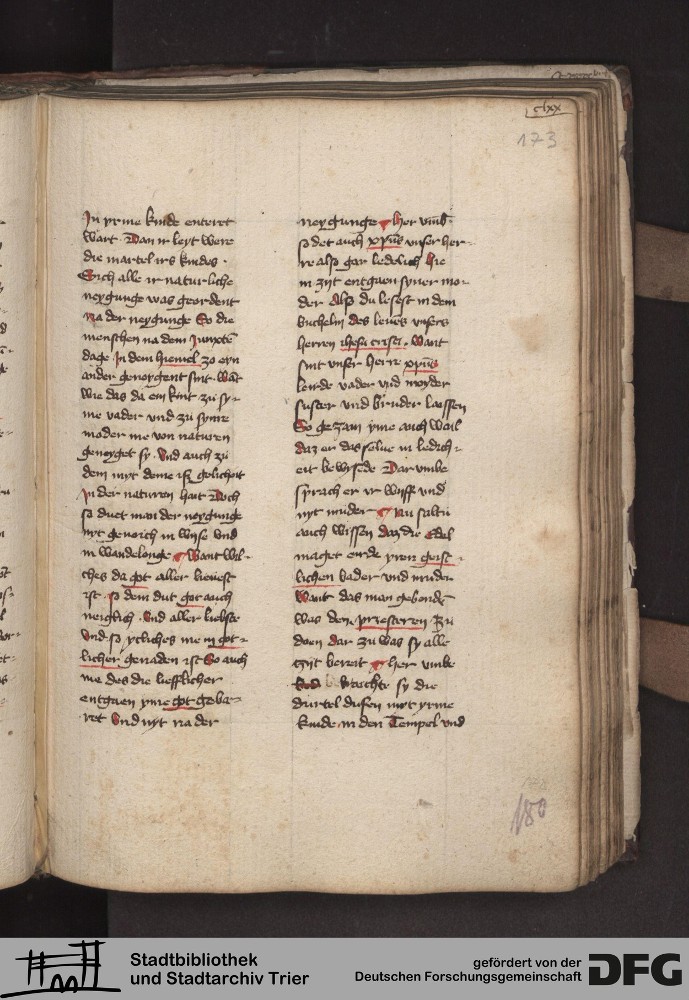 clxx
173
In yrme kinde enteret
wart. Dan ir leyt were
die martel irs kindes.
Sich alle ir naturliche
neygunge was geordent
na der neygunge So die
menschen na dem Junxtē
dage In dem hiemel zo eyn
ander geneyget sint. wāt
wie das da ein kint zu sy-
me vader und zu syme
moder me von naturen
geneyget sy. Und auch zu
dem myt deme iß gelicheit
In der naturen hait Doch
so duet man der neygunge
nyt genoich in wyse und
in wandelonge Want wil-
ches da got aller lieuest
ist. so dem dut got auch
neiglich. Und aller liebste
Und so ycliches me in got-
licher genaden ist So auch
me des die liefflicher
entgaen yme got geba-
ret Und nyt na der
neygunge her umb
so det auch xpūs unser her-
re also gar ledelich hie
in zijt entgaen syner mo-
der Also du lesest in dem
buchelin des leuēs unsers
herren ihesu cristi. Want
sint unser herre xpūs
leirde vader und moyder
suster und bruder laessen
So gezam yme auch wail
daz er dasselue in ledich-
eit bewysede Dar umbe
sprach er ir wyff und
nyt muder Nu saltu
auch wissen daz die edel
maget eirde yren geist-
lichen vader und muder
Want das man gebondē
was den priesteren Zu
doen dar zu was sy alle
tzijt bereit her umbe
brachte sy die
durtel dufen myt yrme
kinde in den Tempel und
180
Stadtbibliothek
und Stadtarchiv Trier
gefördert von der
Deutschen Forschungsgemeinschaft
DFG